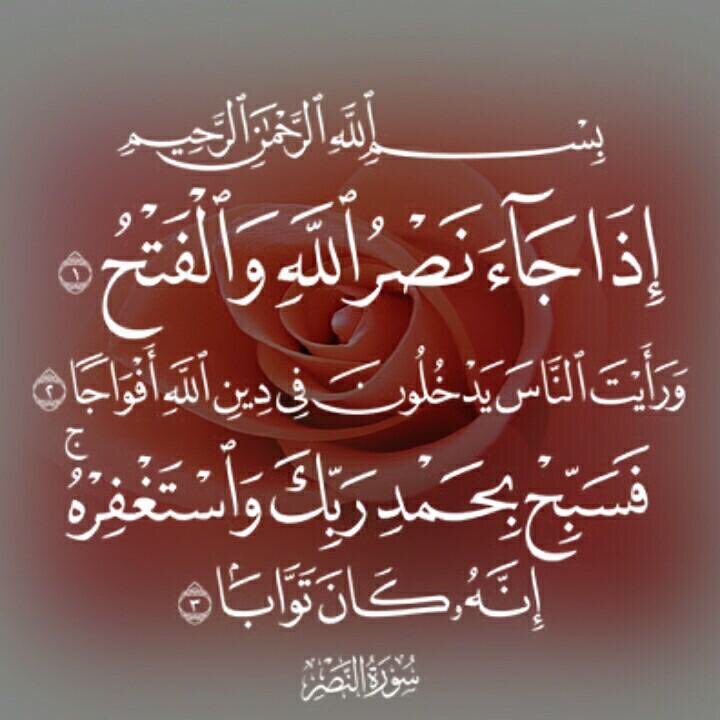 بِسْمِ ٱللَّهِ ٱلرَّحْمَٰنِ ٱلرَّحِيمِ
إِذَا جَآءَ نَصْرُ ٱللَّهِ وَٱلْفَتْحُ ١
وَرَأَيْتَ ٱلنَّاسَ يَدْخُلُونَ فِى دِينِ ٱللَّهِ أَفْوَاجًا ٢
فَسَبِّحْ بِحَمْدِ رَبِّكَ وَٱسْتَغْفِرْهُ ۚ
إِنَّهُۥ كَانَ تَوَّابًۢا ٣
سُورَةُ النَّصْرِ